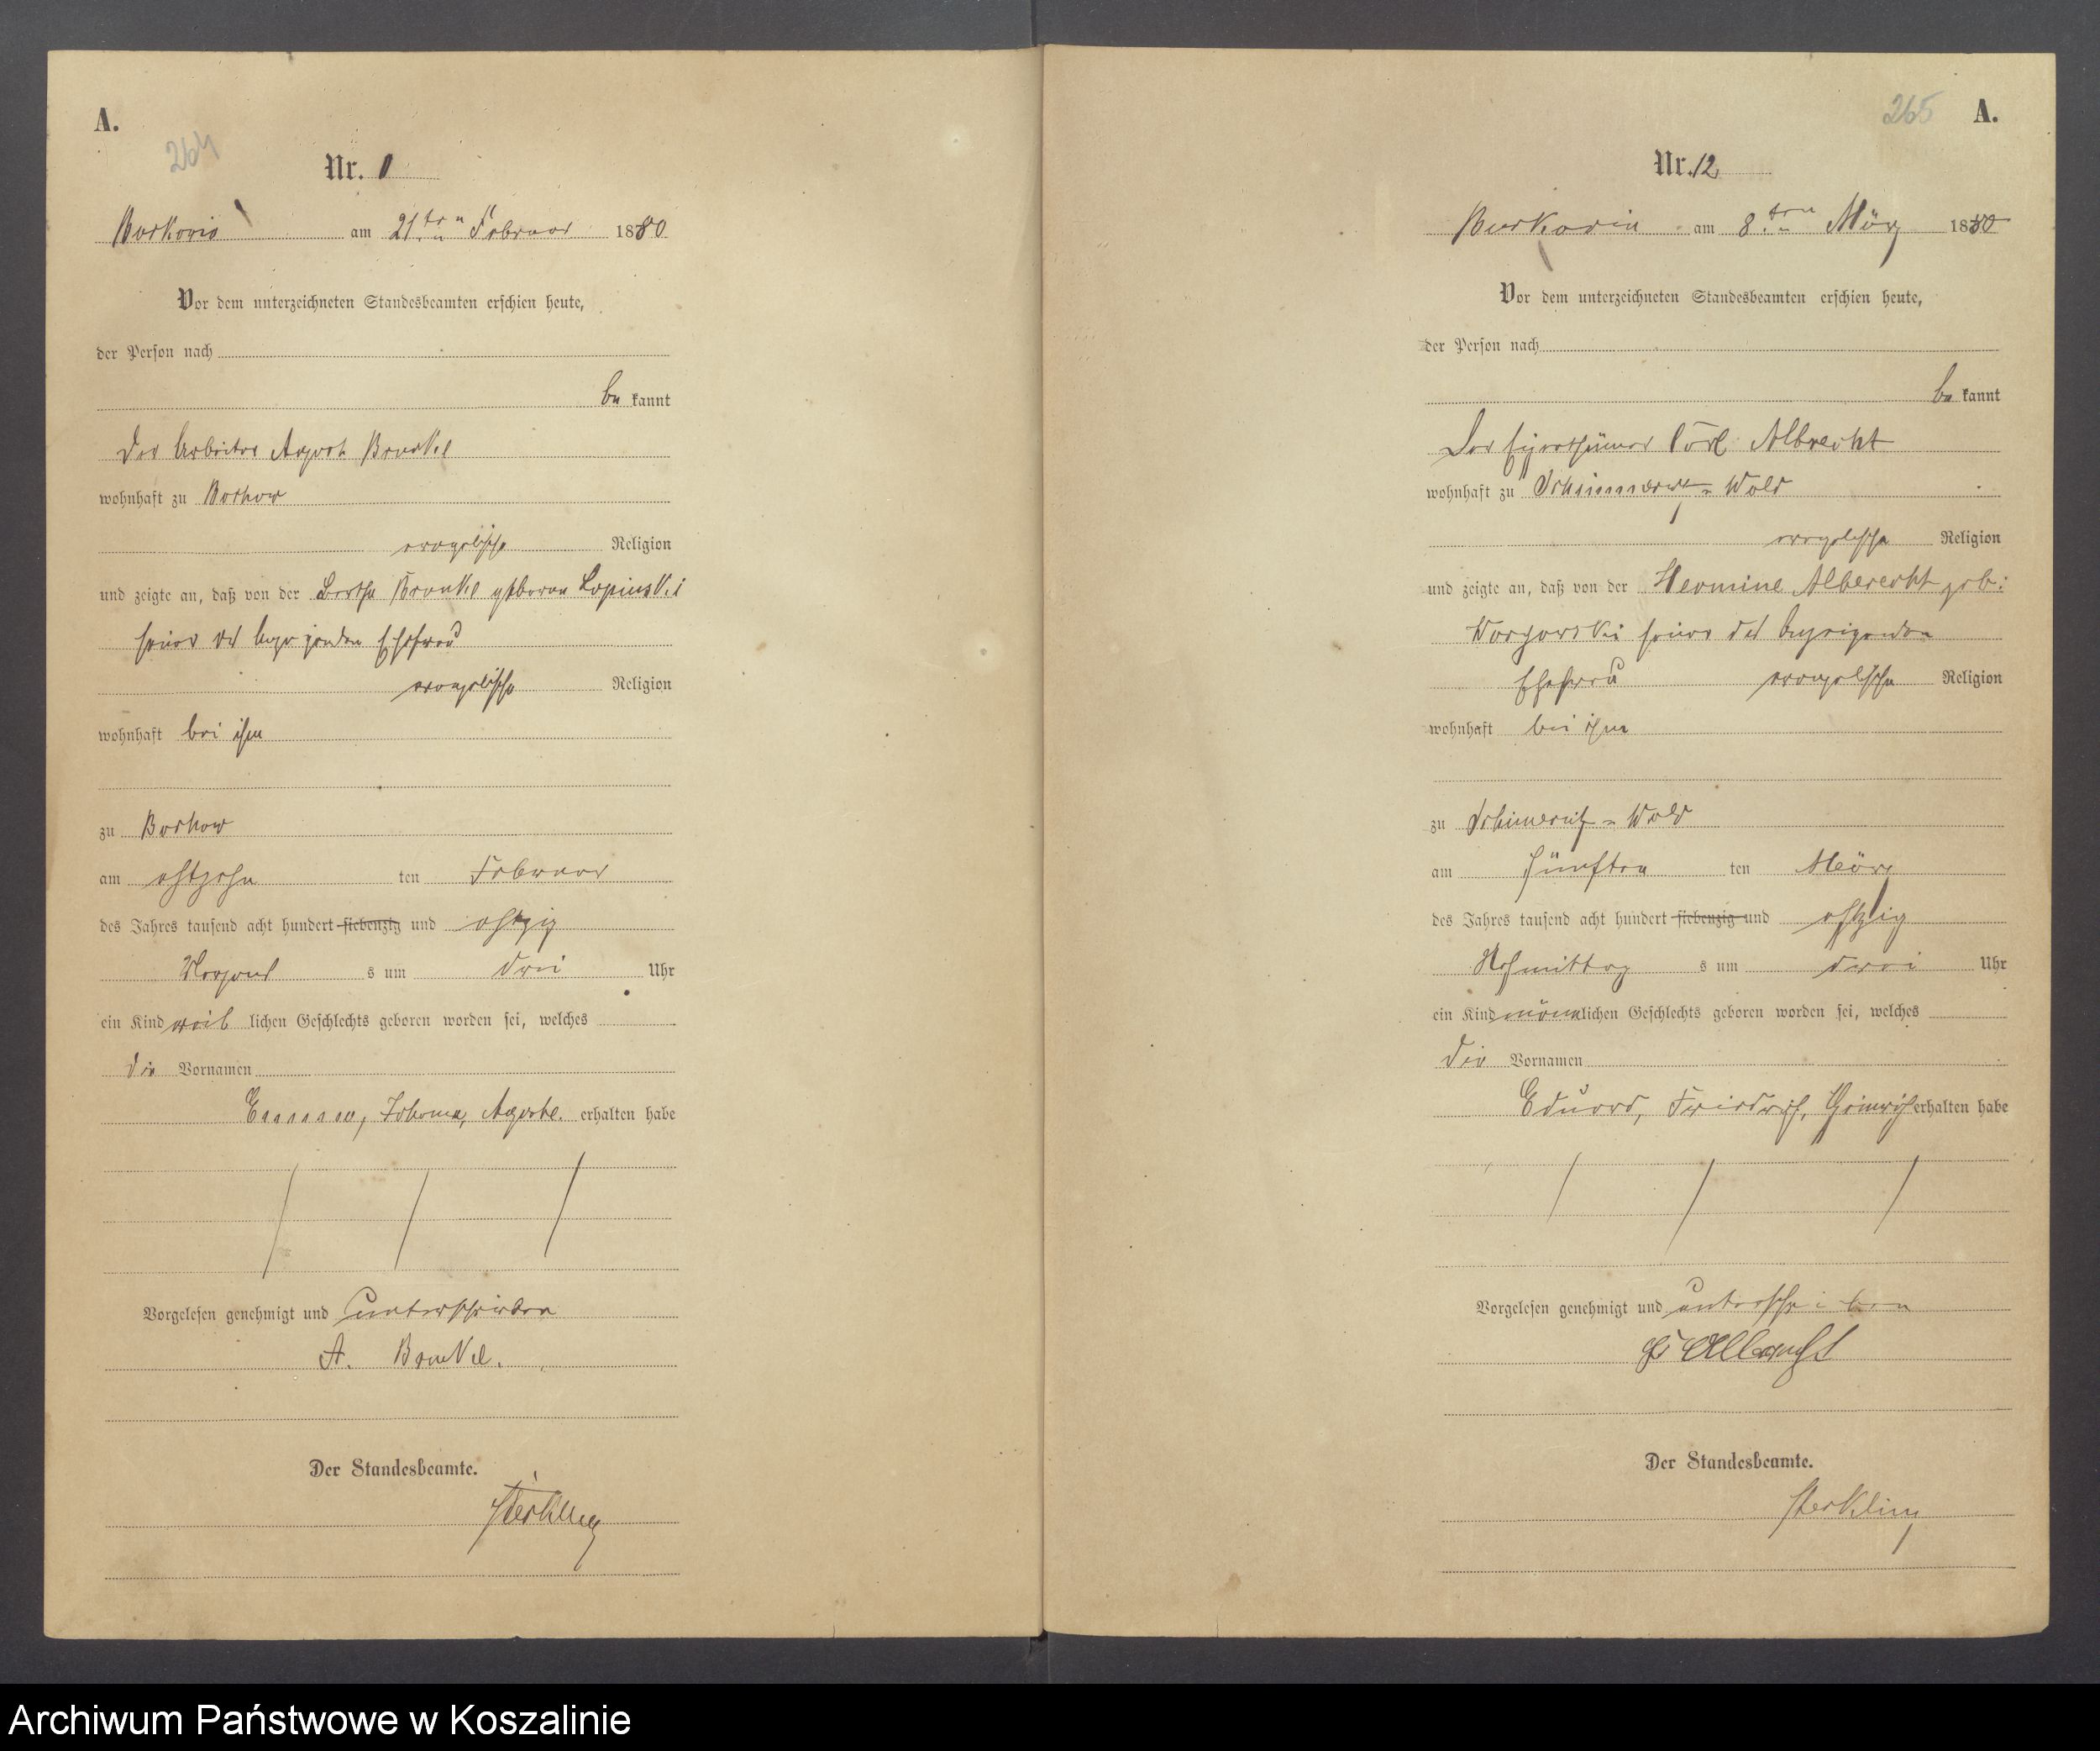 A.
264
Nr.
am 21ten Februar 1880
Vor dem unterzeichneten Standesbeamten erschien heute,
der Person nach
be kannt
Der Arbeiter August Brunkel
wohnhaft zu Borkow
evangelische Religion
und zeigte an, daß von der Bertha geboren
seiner des Anzeigenden Ehefrau
evangelische Religion
wohnhaft bei ihm
zu Borkow
am achtzehn ten Februar
des Jahres tausend acht hundert siebenzig und achtzig
Morgens s um drei Uhr
ein Kind weib lichen Geschlechts geboren worden sei, welches
die Vornamen
Johanna, Auguste. erhalten habe
Vorgelesen genehmigt und unterschrieben
A.
Der Standesbeamte.
Sterkling
265 A.
Nr. 12
am 8ten März 1880
Vor dem unterzeichneten Standesbeamten erschien heute,
der Person nach
be kannt
Der Eigenthümer Carl Albrecht
wohnhaft zu Wald
evangelische Religion
und zeigte an, daß von der Hermine Alberecht geb:
seiner des Anzeigenden
Ehefrau evangelische Religion
wohnhaft bei ihm
zu Schimeritz = Wald
am fünften ten März
des Jahres tausend acht hundert siebenzig und achtzig
Nachmittag s um drei Uhr
ein Kind männlichen Geschlechts geboren worden sei, welches
die Vornamen
Eduard, Friedrich, Heinrich erhalten habe
Vorgelesen genehmigt und unterschrieben
Albrecht
Der Standesbeamte.
Sterkling
Archiwum Państwowe w Koszalinie